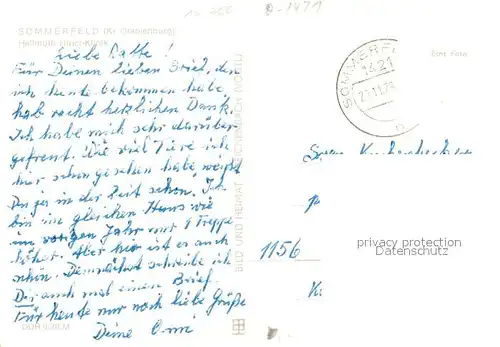 SOMMERFELD (Kr. Oranienburg)
Hellmuth-Ulrici-Klinik
Liebe Katte!
Für Deinen lieben Brief, den
ich heute bekommen habe,
hab recht herzlichen Dank.
Ich habe mich sehr darüber
gefreut. Wie viel Tiere ich
hier schon gesehen habe weißt
Du ja in der Zeit schon. Ich
bin im gleichen Haus wie
im vorigen Jahr nur 1 Treppe
höher. Aber hier ist es auch
schön. Demnächst schreibe ich
Dir auch mal einen Brief.
Für heute nur noch liebe Grüße
Deine Omi
BILD UND HEIMAT REICHENBACH
Echt Foto
SOMMERF
1421
1156
privacy protection
Datenschutz